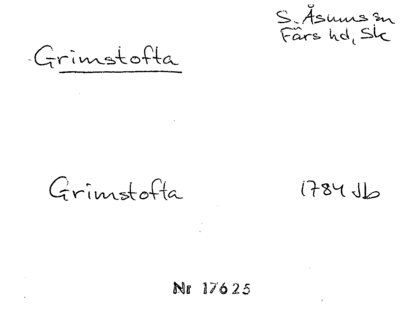 S. Åsums sn
Färs hd, Sk
Grimstofta
Grimstofta 1784 Jb
Nr 17625